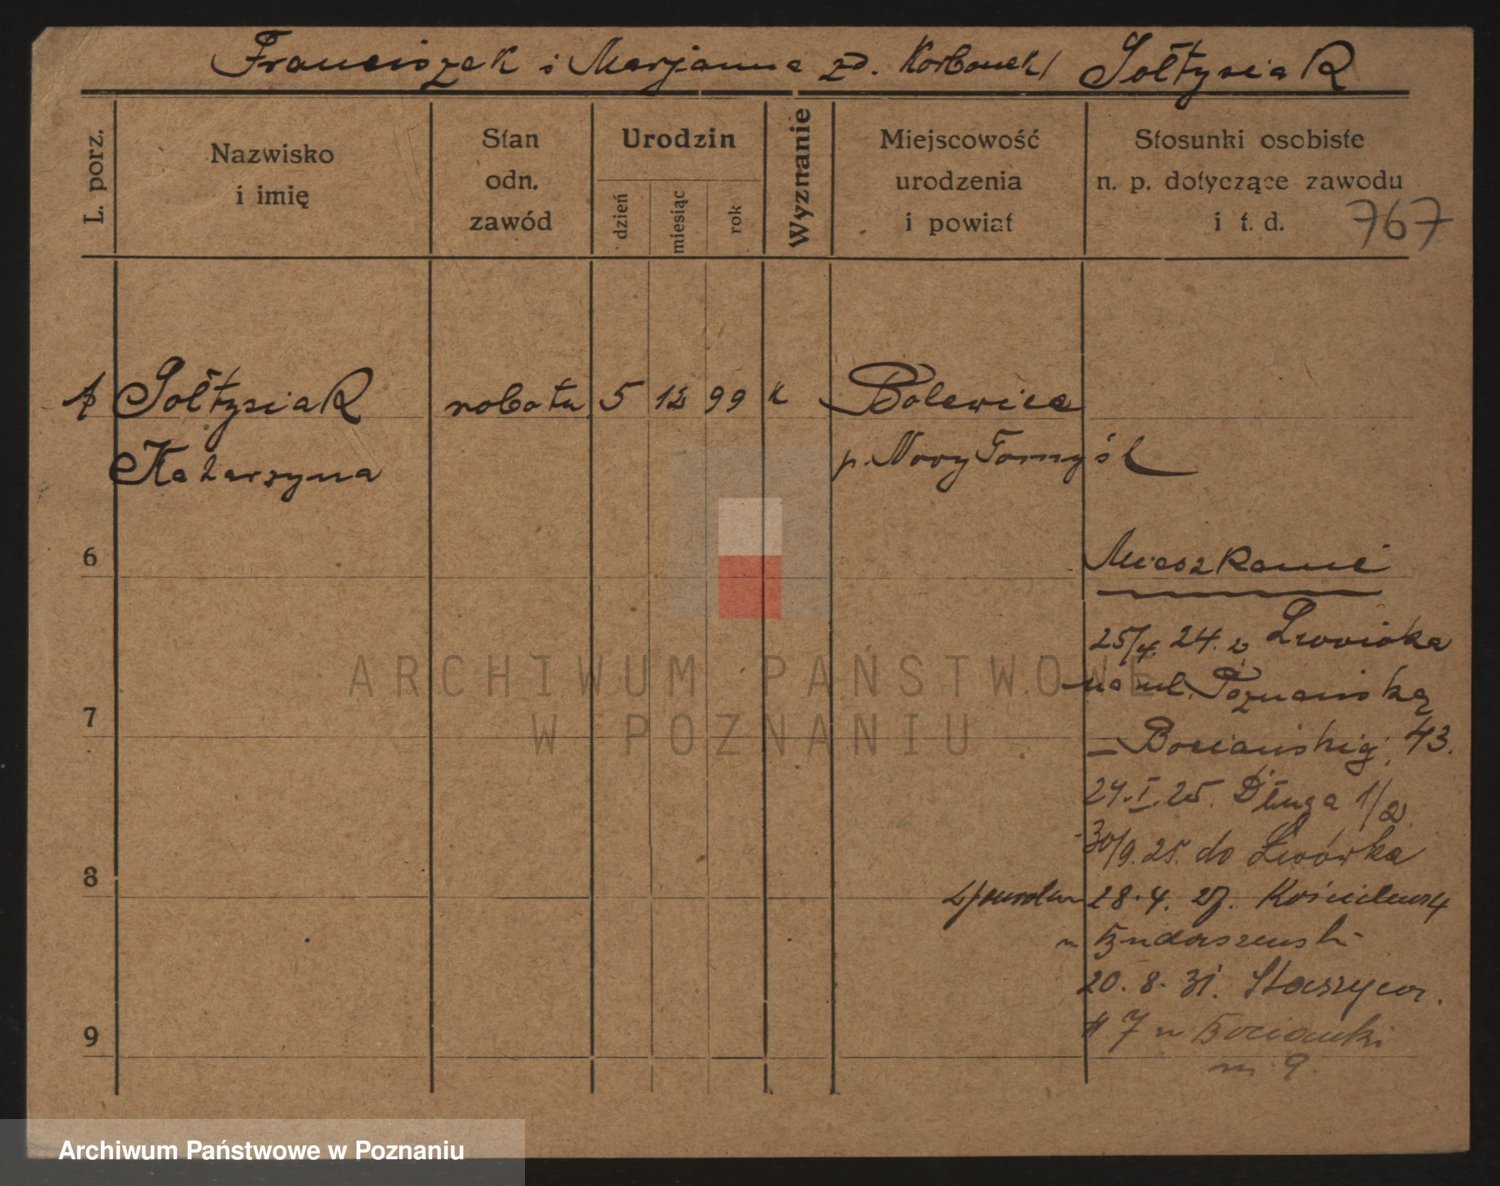 Franciszek i Marjanna zd. Sołtysiak
L. porz.
Nazwisko
i imię
Stan
odn.
zawód
Urodzin
dzień
miesiąc
rok
Wyznanie
Miejscowość
urodzenia
i powiat
Stosunki osobiste
n. p. dotyczące zawodu
i t. d.
767
Sołtysiak robotn 5 12 99 k Bolewice
Katarzyna p. Nowy Tomyśl
6
7
8
9
Mieszkanie
25/4. 24. z Lwówka
na ul. Poznańską
43.
24. I. 25. Długa 1/2
30/9. 25. do Lwówka
28. 4. 27.
20. 8. 31.
7
m 9.
ARCHIWUM PAŃSTWOWE
W POZNANIU
Archiwum Państwowe w Poznaniu